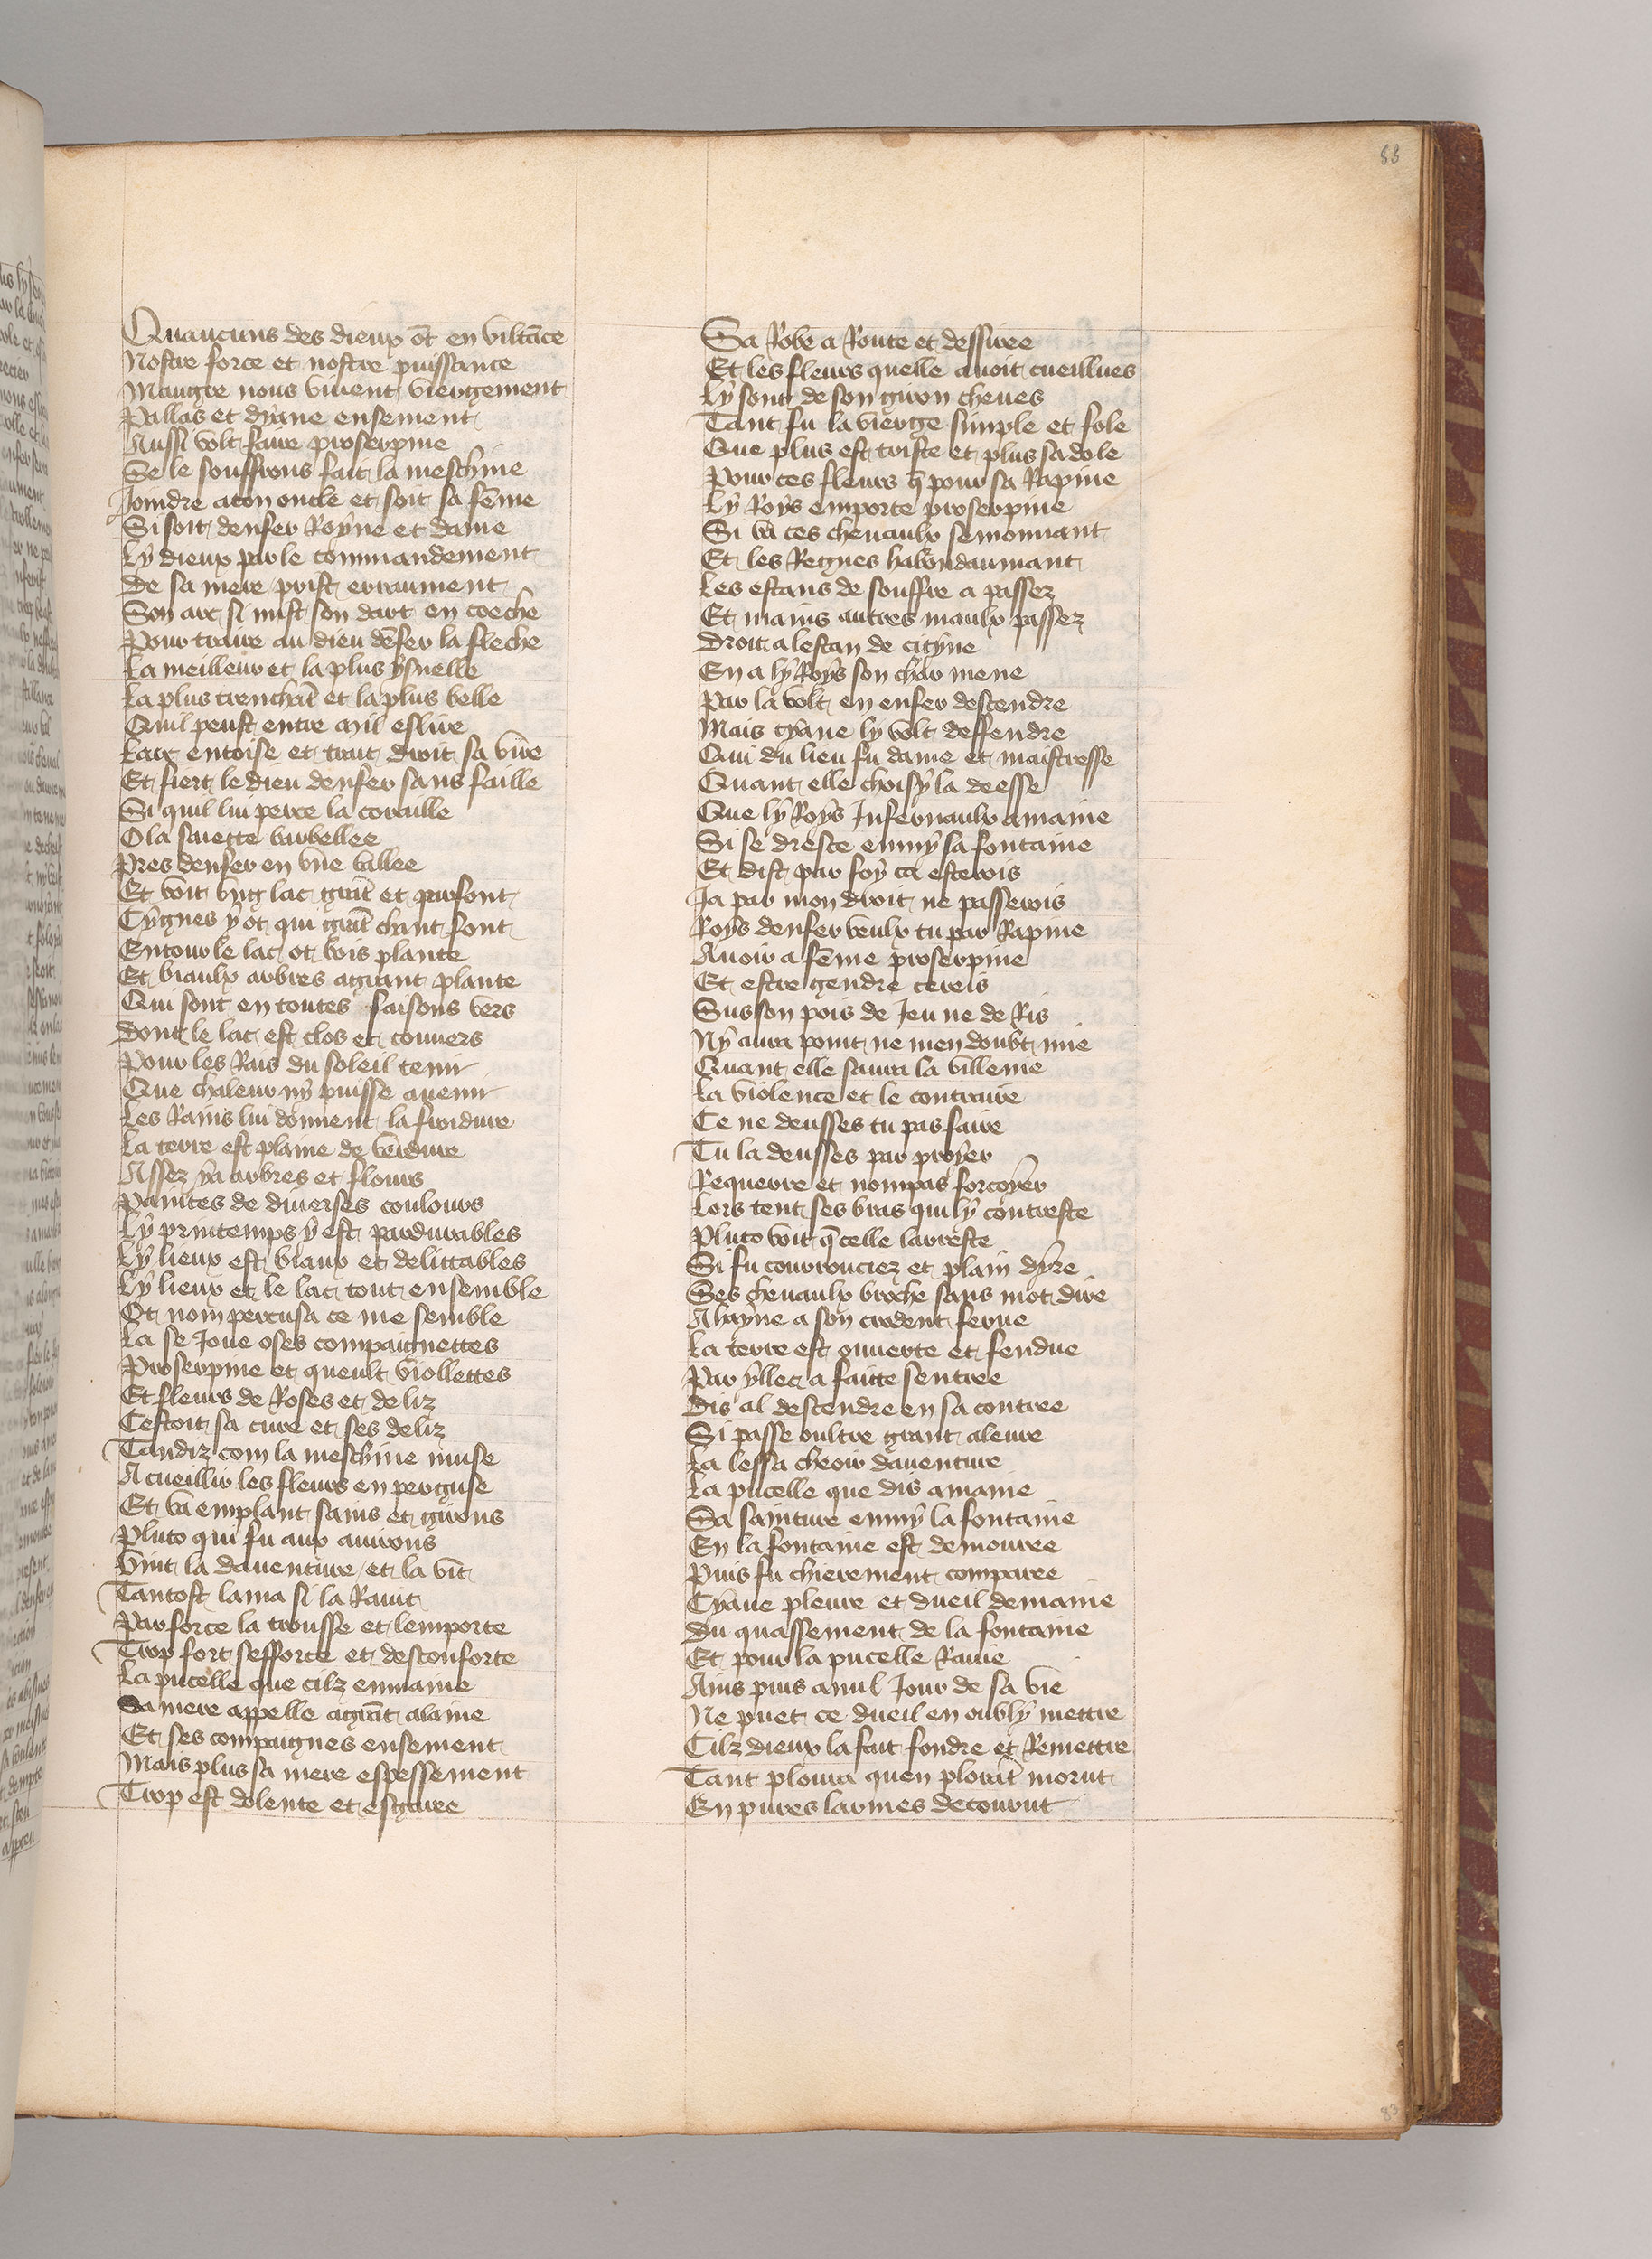 83
Quaucuns des dieux ōt en viltāce
Nostre force et nostre puissance
Maugre nous viuent viergement
Pallas et dyane ensement
Aussi volt faire proserpine
Se le souffrons fait la meschine
Joindre a ton oncle et soit sa fēme
Si soit denfer Royne et dame
Ly dieux par le commandement
De sa mere prist erraument
Son arc si mist son dart en coeche
Pour traire au dieu dēfer la fleche
La meilleur et la plus ysnelle
La plus trenchāt et la plus belle
Quil peust entre mil eslire
Larc entoise et trait droit sa vire
Et fiert le dieu denfer sans faille
Si quil lui perce la coraille
O la saiette barbellee
Pres denfer en vne vallee
Et voit vng lac grāt et parfont
Cygnes y ot qui grāt chant font
Entour le lac ot bois plante
Et biaulx arbres a grant plante
Qui sont en toutes saisons vers
Dont le lac est clos et couuers
Pour les Rais du soleil tenir
Que chaleur ny puisse auenir
Les Rains lui donnent la froidure
La terre est plaine de verdure
Assez y a arbres et flours
Paintes de diuerses coulours
Ly printemps y est pardurables
Ly lieux est biaux et delittables
Ly lieux et le lac tout ensemble
Ot nom percusa ce me semble
La se Joue o ses compaignettes
Proserpine et queult viollettes
Et fleurs de Roses et de liz
Cestoit sa cure et ses deliz
Tandiz com la meschine muse
A cueillir les fleurs en perguse
Et va emplant sains et girons
Pluto qui fu aux auirons
Vint la dauenture et la vit
Tantost lama si la Rauit
Par force la trousse et lemporte
Trop fort sefforce et desconforte
La pucelle que cilz enmaine
Sa mere appelle a grāt alaine
Et ses compaignes ensement
Mais plus sa mere espessement
Trop est dolente et esgaree
Sa Robe a Route et dessiree
Et les fleurs quelle auoit cueillues
Ly sont de son giron cheues
Tant fu la vierge simple et fole
Que plus est triste et plus sadole
Pour ces fleurs q̄ pour sa Rapine
Ly Roys emporte proserpine
Si va ces cheuaulx semonnant
Et les Regnes habandaunant
Les estans de souffre a passez
Et mains autres maulx passez
Droit a lestan de cityne
En a ly Roys son char mene
Par la volt en enfer descendre
Mais cyane ly volt deffendre
Qui du lieu fu dame et maistresse
Quant elle choisy la deesse
Que ly Roys Infernaulx amaine
Si se dresce enmy sa fontaine
Et dist par foy ca esterois
Ja par mon droit ne passerois
Roys denfer veulx tu par Rapine
Auoir a fēme proserpine
Et estre gendre cereis
Sus son pois de Jeu ne de Ris
Ny aura point ne men doubt mie
Quant elle saura la villenie
La violence et le contraire
Ce ne deusses tu pas faire
Tu la deusses par proyer
Requerre et nompas forcoyer
Lors tent ses bras qui ly contreste
Pluto voit q̄ celle larreste
Si fu courrouciez et plain dyre
Ses cheuaulx broche sans mot dire
Ahayne a son credent ferue
La terre est ouuerte et fendue
Par yllec a faitte sentree
Dis al descendre en sa contree
Si passe oultre grant aleure
La lessa cheoir dauenture
La pucelle que dis amaine
Sa sainture enmy la fontaine
En la fontaine est demouree
Puis fu chierement comparee
Cyane pleure et dueil demaine
Du quassement de la fontaine
Et pour la pucelle Rauie
Ains puis a nul Jour de sa vie
Ne puet ce dueil en oubly mettre
Cilz dieux la fait fondre et Remettre
Tant ploura quen plorāt morut
En pures larmes decourut
83